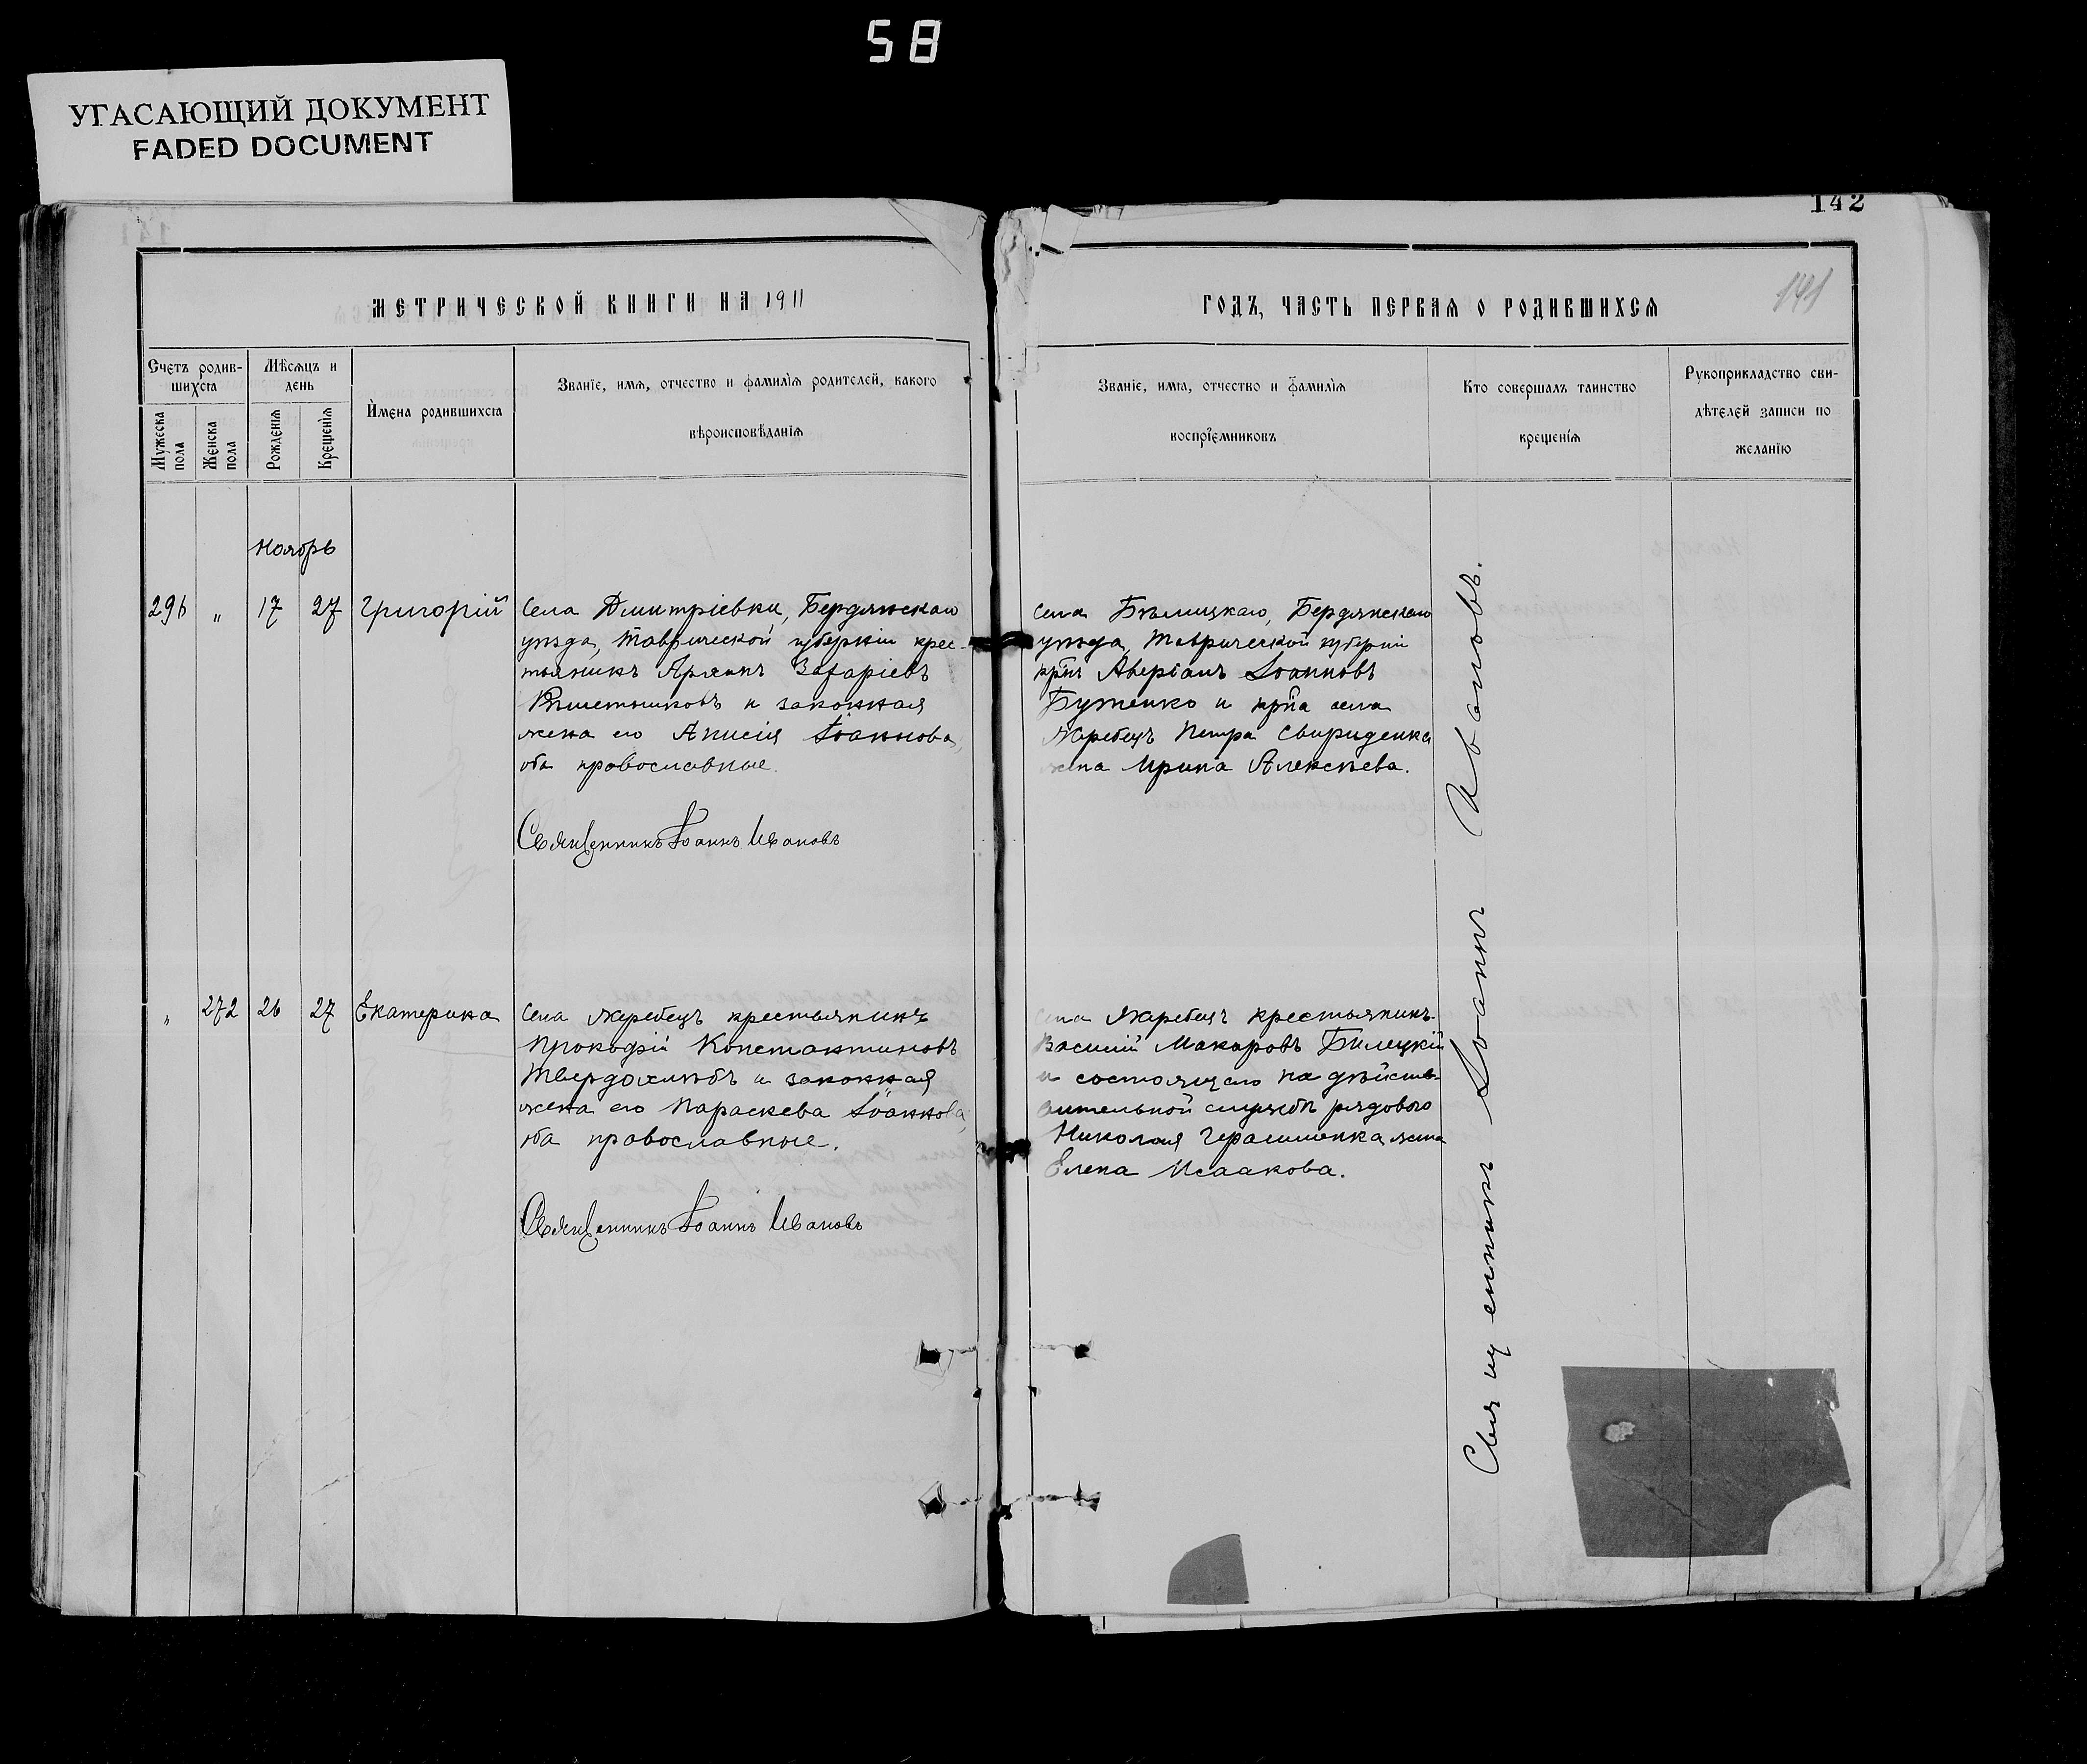 58
УГАСАЮЩИЙ ДОКУМЕНТ
FADED DOCUMENT
142
141
МЕТРИЧЕСКОЙ КНИГИ НА 1911
ГОДЪ, ЧАСТЬ ПЕРВАЯ О РОДИВШИХСЯ
Счетъ родив-
шихся
Мужеска
пола
Женска
пола
Мѣсяцъ и
день
Рожденія
Крещенія
Имена родившихся
Званіе, имя, отчество и фамилія родителей, какого
вѣроисповѣданія
Званіе, имя, отчество и фамилія
воспріемниковъ
Кто совершалъ таинство
крещенія
Рукоприкладство сви-
дѣтелей записи по
желанію
Ноябрь
296 „ 17 27 Григорій
Села Дмитріевки, Бердянскаго
уѣзда, Таврической губерніи крес-
тьянинъ Захаріевъ
Рѣшетниковъ и законная
жена его Анисія Іоаннова,
оба православные.
Священникъ Іоаннъ Ивановъ
Села Бѣлицкаго, Бердянскаго
уѣзда, Таврической губерніи
крнъ Аверіанъ Іоанновъ
Бутенко и крна села
Жеребецъ Петра Свириденка
жена Ирина Алексѣева.
„ 272 26 27 Екатерина
Села Жеребецъ крестьянинъ
Прокофій Константиновъ
Твердохлѣбъ и законная
жена его Параскева Іоаннова,
оба православные.
Священникъ Іоаннъ Ивановъ
Села Жеребецъ крестьянинъ
Василій Макаровъ Билецкій
и состоящаго на дѣйств-
ительной службѣ рядового
Николая Герасименка жена
Елена Исаакова.
Священникъ Іоаннъ Ивановъ.